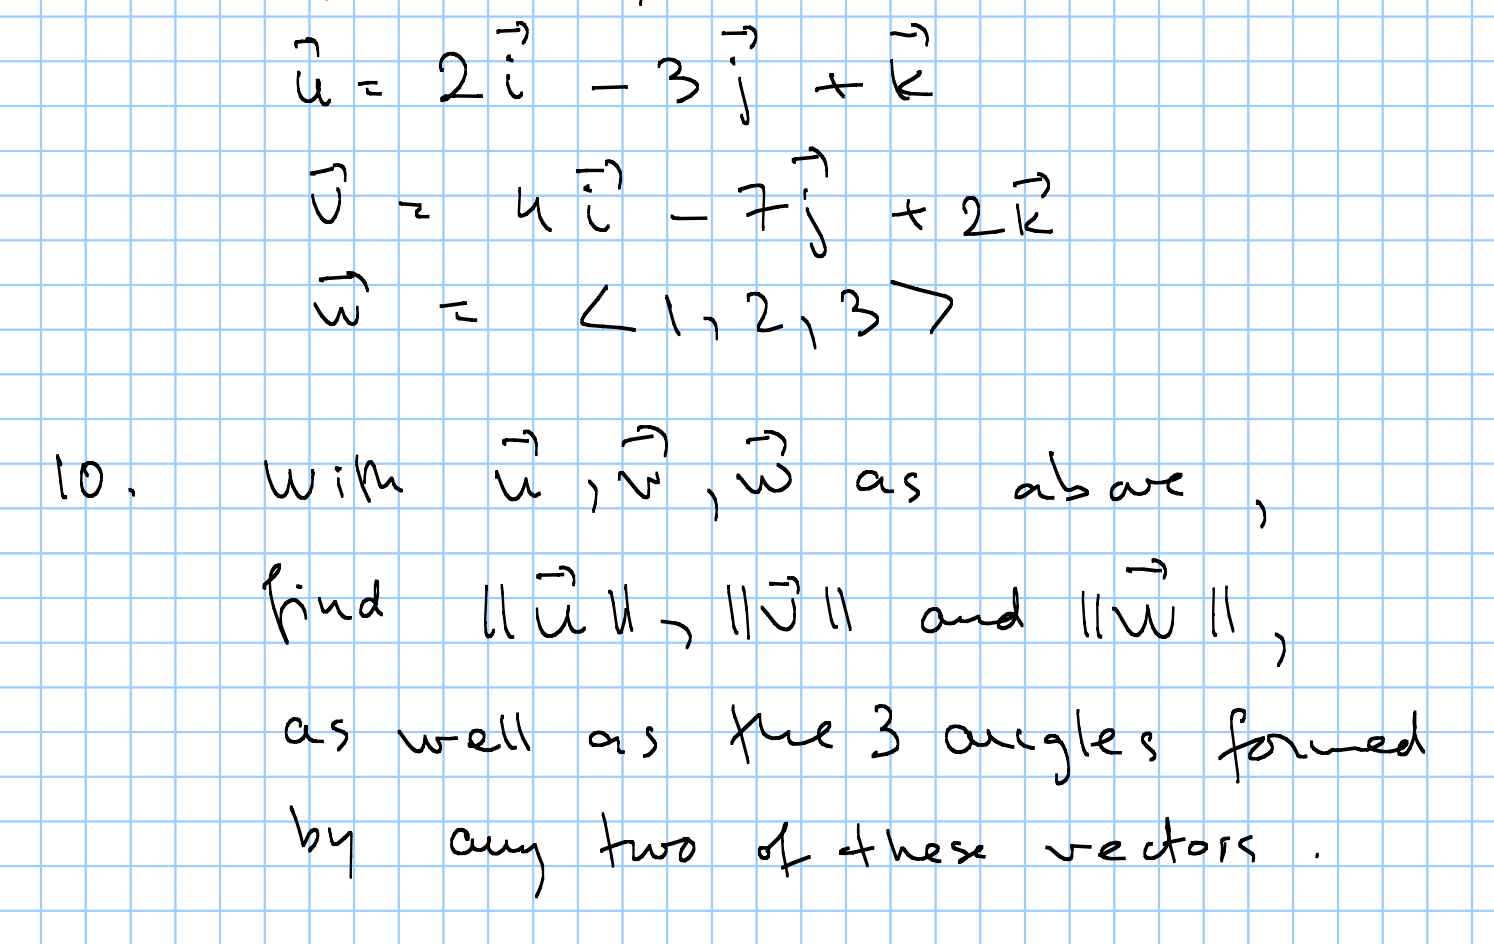 u⃗ = 2i⃗ - 3j⃗ + k⃗
v⃗ = 4i⃗ - 7j⃗ + 2k⃗
w⃗ = <1, 2, 3>
10. With u⃗, v⃗, w⃗ as above,
find ||u⃗||, ||v⃗|| and ||w⃗||,
as well as the 3 angles formed
by any two of these vectors.